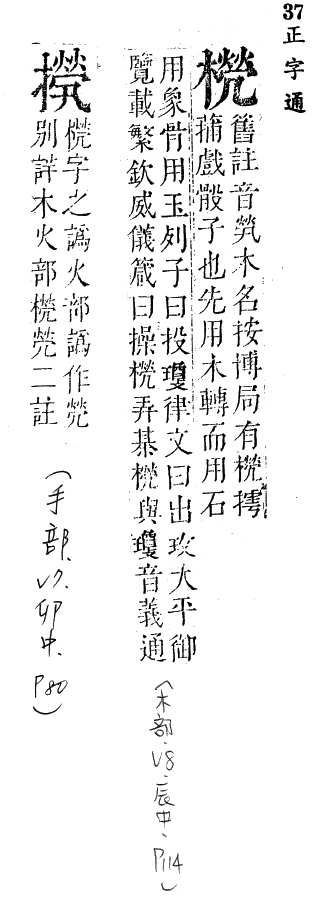 37正字通
舊註音木名按博局有摴
蒱戲骰子也先用木轉而用石
用象骨用玉列子曰投瓊律文曰出玖大平御
覽載繁欽威儀箴曰操弄棊與瓊音義通
(木部、V8、辰中、P114)
字之譌火部譌作
別詳木火部二註
(手部、V7、卯中、P80)